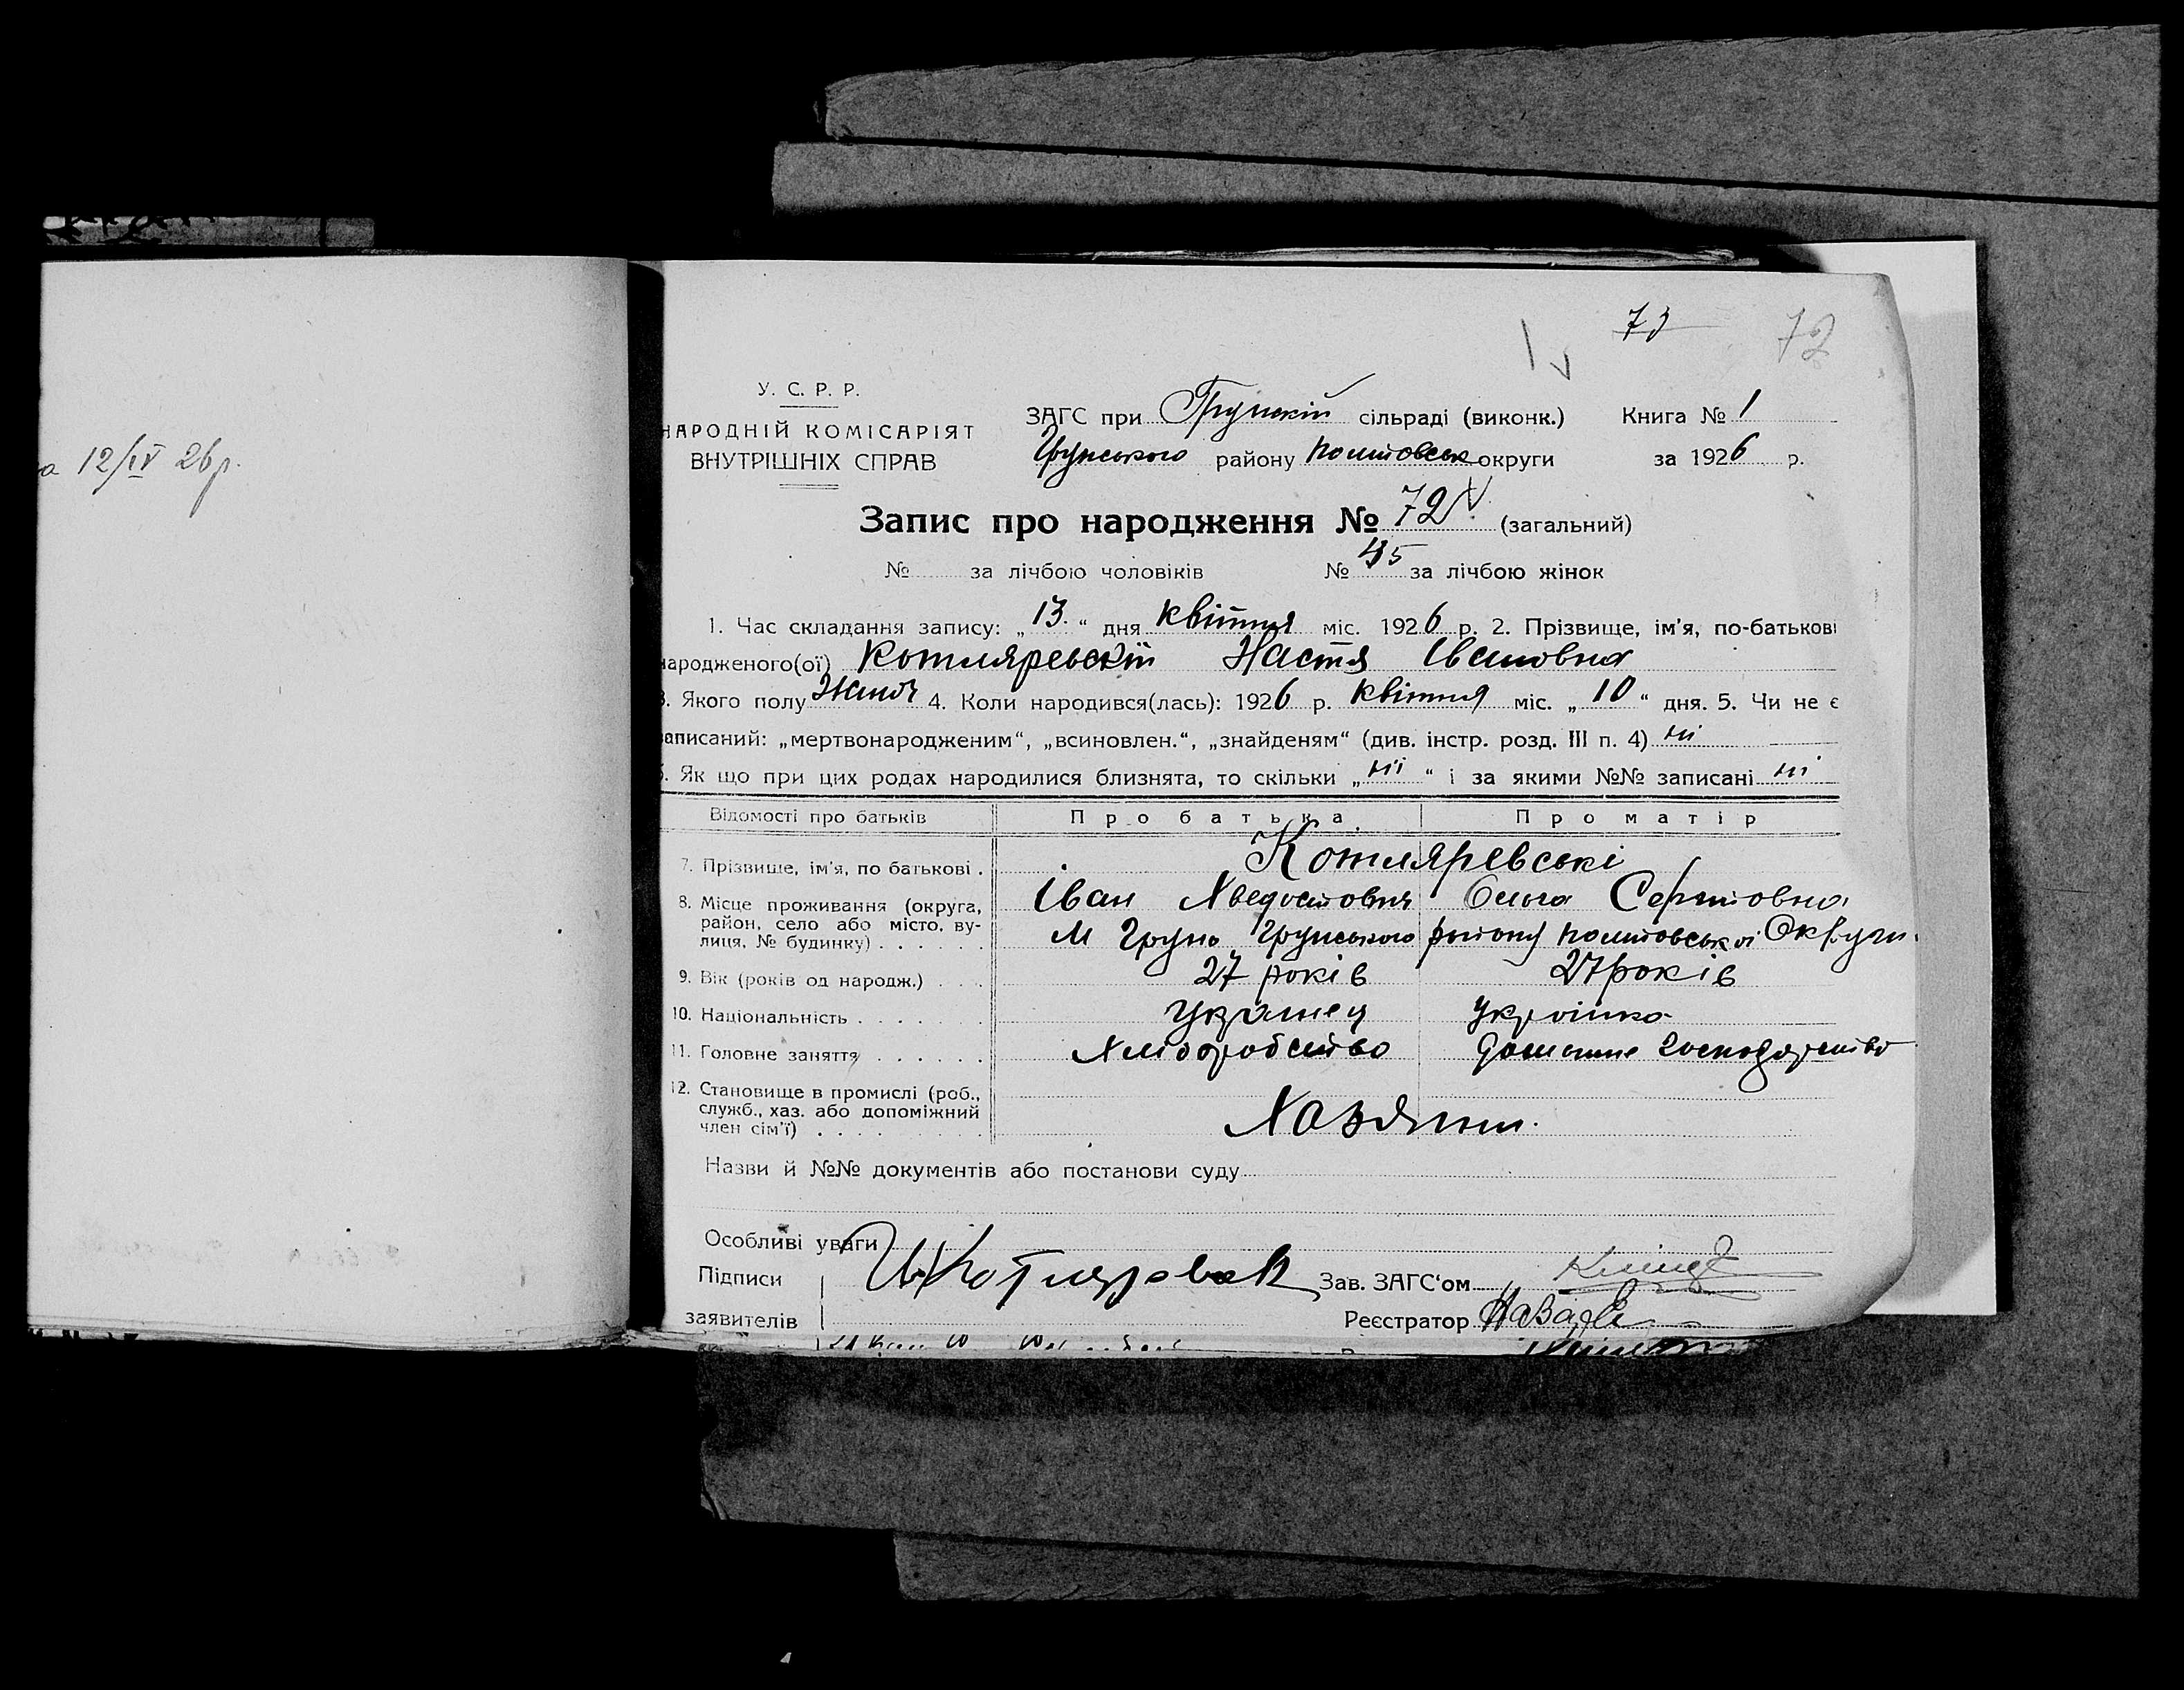 73 72
а 12/IV 26 р.
У. С. Р. Р.
НАРОДНІЙ КОМІСАРІЯТ
ВНУТРІШНІХ СПРАВ
ЗАГС при Грунскій сільраді (виконк.) Книга № 1
Грунського району Полтовськ округи за 1926 р.
Запис про народження № 72 (загальний)
№ за лічбою чоловіків № 35 за лічбою жінок
1. Час складання запису: „13." дня квітня міс. 1926 р. 2. Прізвище, ім'я, по-батькові
народженого(ої) Котляревскій Настя Івановна
3. Якого полу Жіноч 4. Коли народився(лась): 1926 р. квітня міс. „10" дня. 5. Чи не є
записаний: „мертвонародженим", „всиновлен.", „знайденям" (див. інстр. розд. III п. 4) ні
6. Як що при цих родах народилися близнята, то скільки „ні" і за якими №№ записані ні
Відомості про батьків Про батька Про матір
7. Прізвище, ім'я, по батькові . Котляревські
Іван Хведостович Ольга
8. Місце проживання (округа, район, село або місто, вулиця, № будинку) М Грунь Грунського району Полтовської Округи.
9. Вік (років од народж.) 27 років 27 років
10. Національність Українец Українка
11. Головне заняття Хліборобство Домашне господарство
12. Становище в промислі (роб.,
служб., хаз. або допоміжний
член сім'ї) Хазяїни.
Назви й №№ документів або постанови суду
Особливі уваги
Підписи Зав. ЗАГС'ом
заявителів Реєстратор